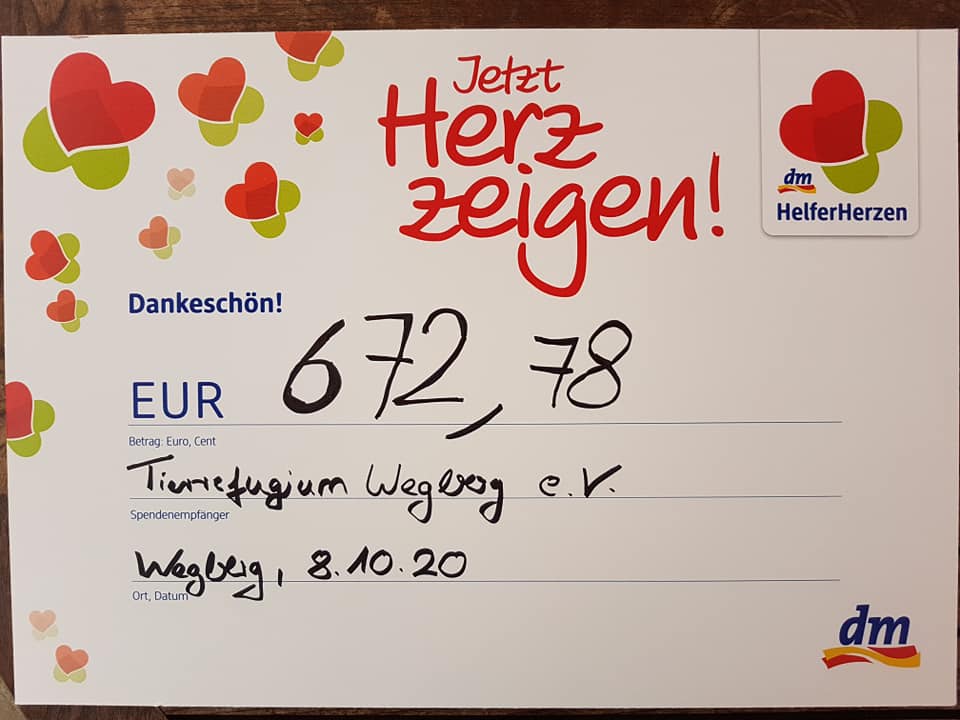 Jetzt
Herz
zeigen!
dm
HelferHerzen
Dankeschön!
EUR 672,78
Betrag: Euro, Cent
Tierrefugium Wegberg e.V.
Spendenempfänger
Wegberg, 8.10.20
Ort, Datum
dm